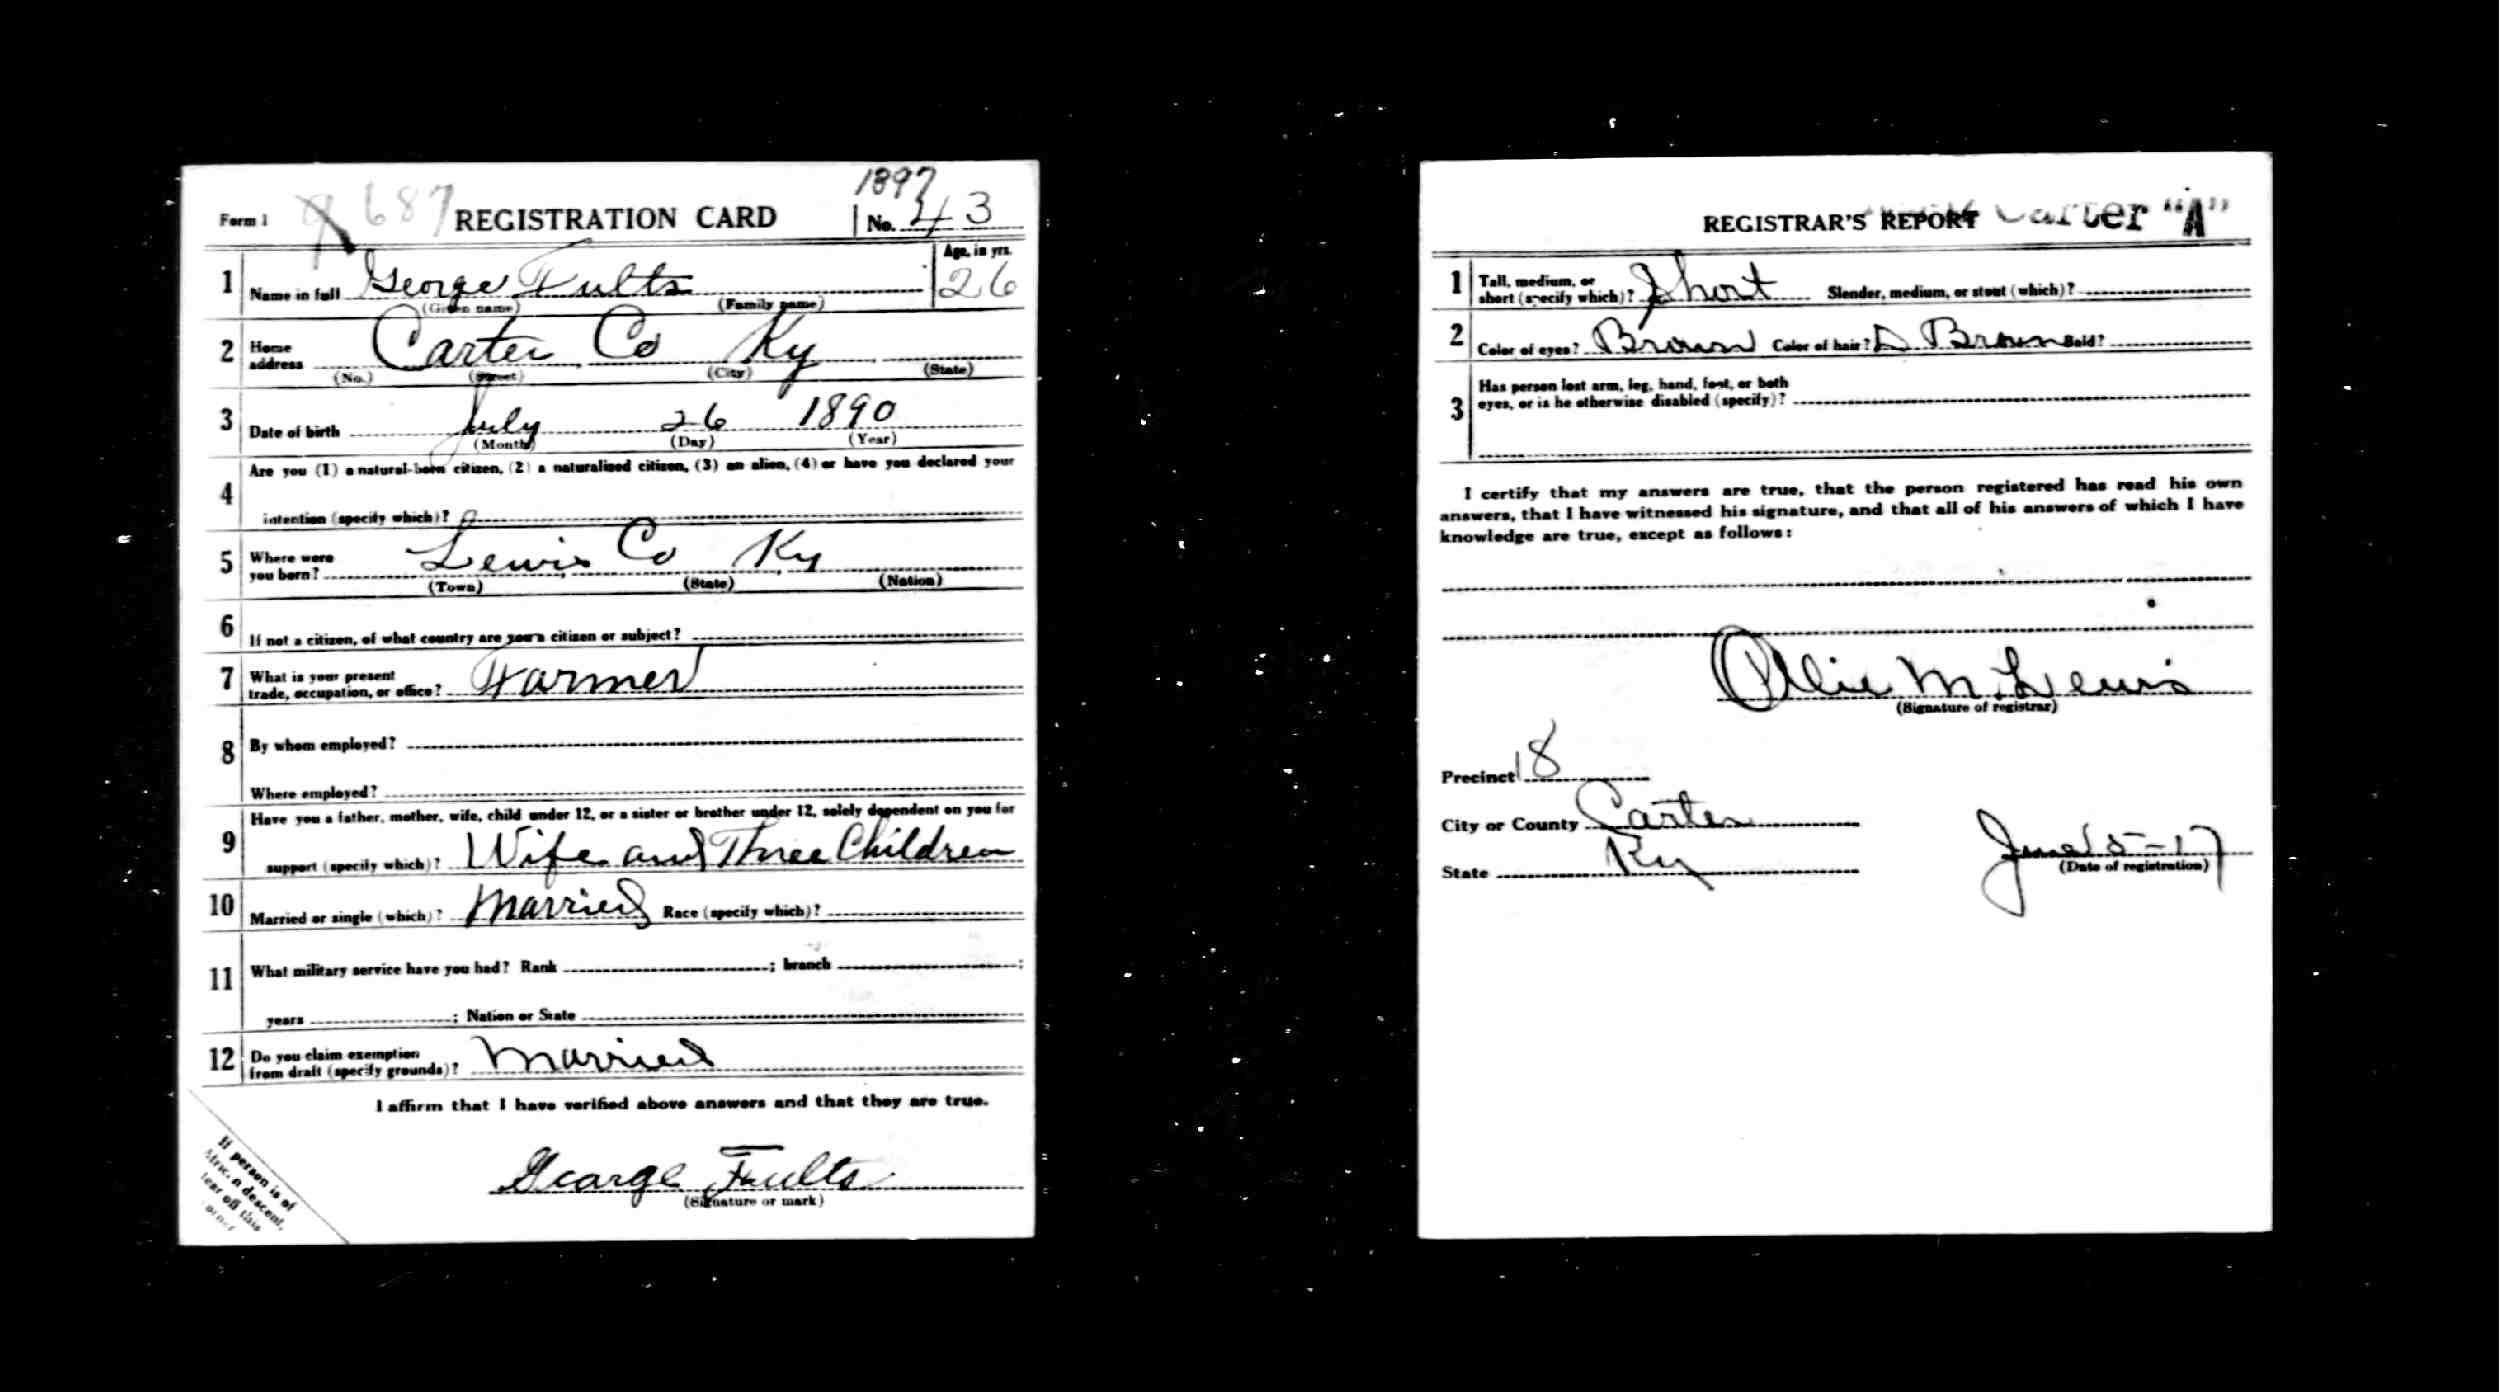 Form 1 687 REGISTRATION CARD No. 43
1897
1 Name in full George Fults Age, in yrs. 26
(Given name) (Family name)
2 Home address Carter Co Ky
(No.) (Street) (City) (State)
3 Date of birth July 26 1890
(Month) (Day) (Year)
4 Are you (1) a natural-born citizen, (2) a naturalized citizen, (3) an alien, (4) or have you declared your
intention (specify which)?
5 Where were you born? Lewis Co Ky
(Town) (State) (Nation)
6 If not a citizen, of what country are you a citizen or subject?
7 What is your present
trade, occupation, or office? Farmer
8 By whom employed?
Where employed?
9 Have you a father, mother, wife, child under 12, or a sister or brother under 12, solely dependent on you for
support (specify which)? Wife and Three Children
10 Married or single (which)? Married Race (specify which)?
11 What military service have you had? Rank ; branch ;
years ; Nation or State
12 Do you claim exemption
from draft (specify grounds)? Married
I affirm that I have verified above answers and that they are true.
George Faults
(Signature or mark)
If person is of
African descent,
tear off this
corner
REGISTRAR'S REPORT Carter "A"
1 Tall, medium, or
short (specify which)? Short Slender, medium, or stout (which)?
2 Color of eyes? Brown Color of hair? D Brown Bald?
3 Has person lost arm, leg, hand, foot, or both
eyes, or is he otherwise disabled (specify)?
I certify that my answers are true, that the person registered has read his own
answers, that I have witnessed his signature, and that all of his answers of which I have
knowledge are true, except as follows:
Ollie M. Lewis
(Signature of registrar)
Precinct 18
City or County Carter
State Ky
June 5-17
(Date of registration)